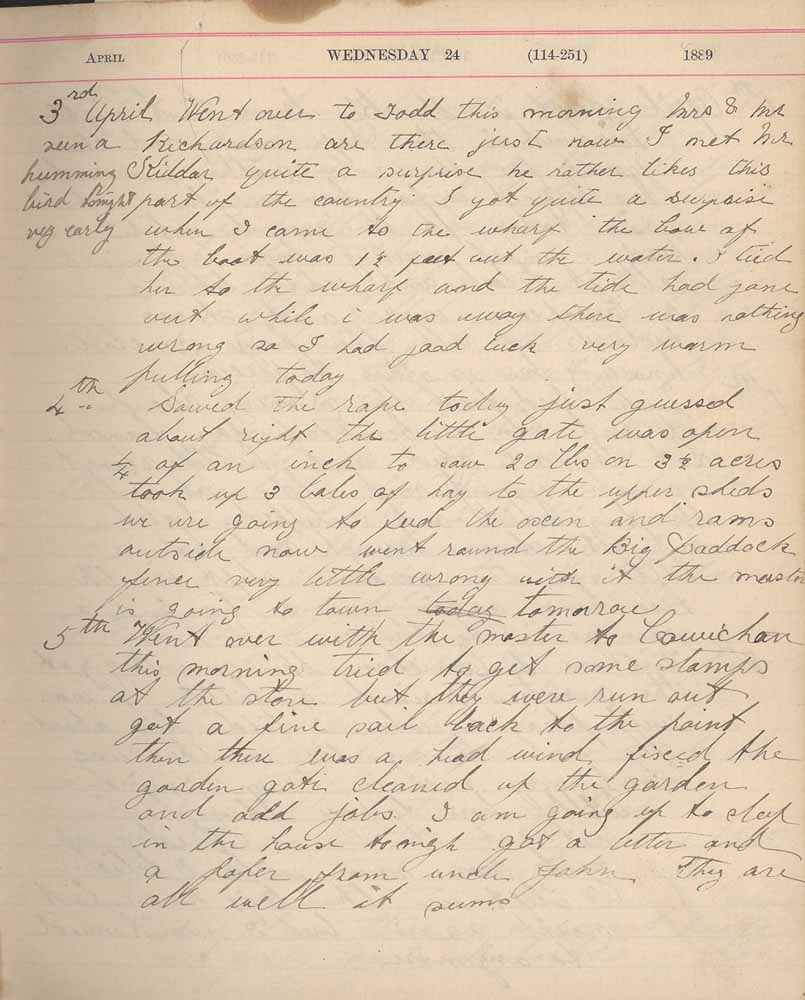 April WEDNESDAY 24 (114-251) 1889
3rd April Went over to Todd this morning Mrs & Mr
Richardson are there just now I met Mr
seen a humming bird tonight very early
Kiddar quite a surprise he rather likes this
part of the country. I got quite a surprise
when I came to the wharf the bow of
the boat was 1½ feet out the water. I tied
her to the wharf and the tide had gone
out while i was away there was nothing
wrong so I had good luck very warm
pulling today
4th Sowed the rape today just guessed
about right the little gate was open
¼ of an inch to sow 20 lbs on 3½ acres
took up 3 bales of hay to the upper sheds
we are going to feed the oxen and rams
outside now went round the Big Paddock
fence very little wrong with it the master
is going to town today tomorrow
5th Went over with the master to Cowichan
this morning tried to get some stamps
at the store but they were run out
got a fine sail back to the point
then there was a head wind fixed the
garden gate cleaned up the garden
and odd jobs. I am going up to sleep
in the house tonigh got a letter and
a paper from uncle John They are
all well it seems